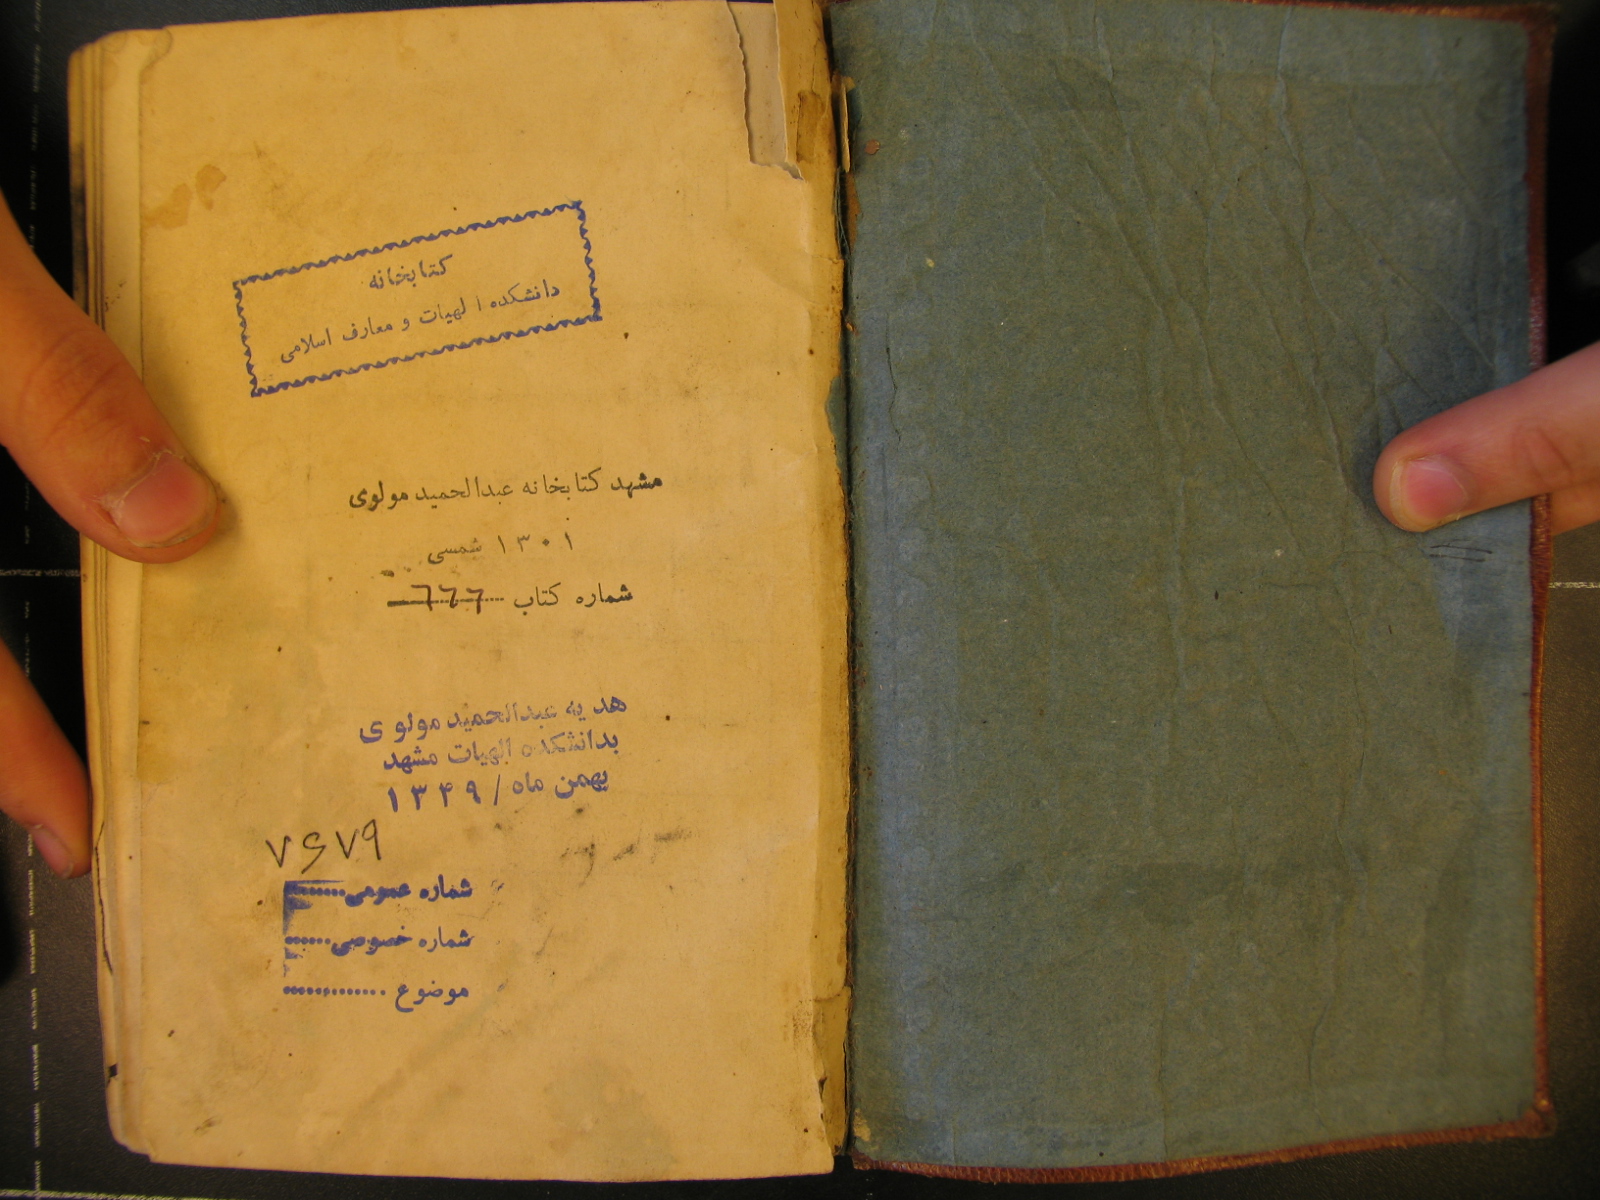 کتابخانه
دانشکده الهیات و معارف اسلامی
مشهد کتابخانه عبدالحمید مولوی
۱۳۰۱ شمسی
شماره کتاب
هدیه عبدالحمید مولوی
بدانشکده الهیات مشهد
بهمن ماه / ۱۳۴۹
۷۶۷۹
شماره عمومی........
شماره خصوصی......
موضوع .............